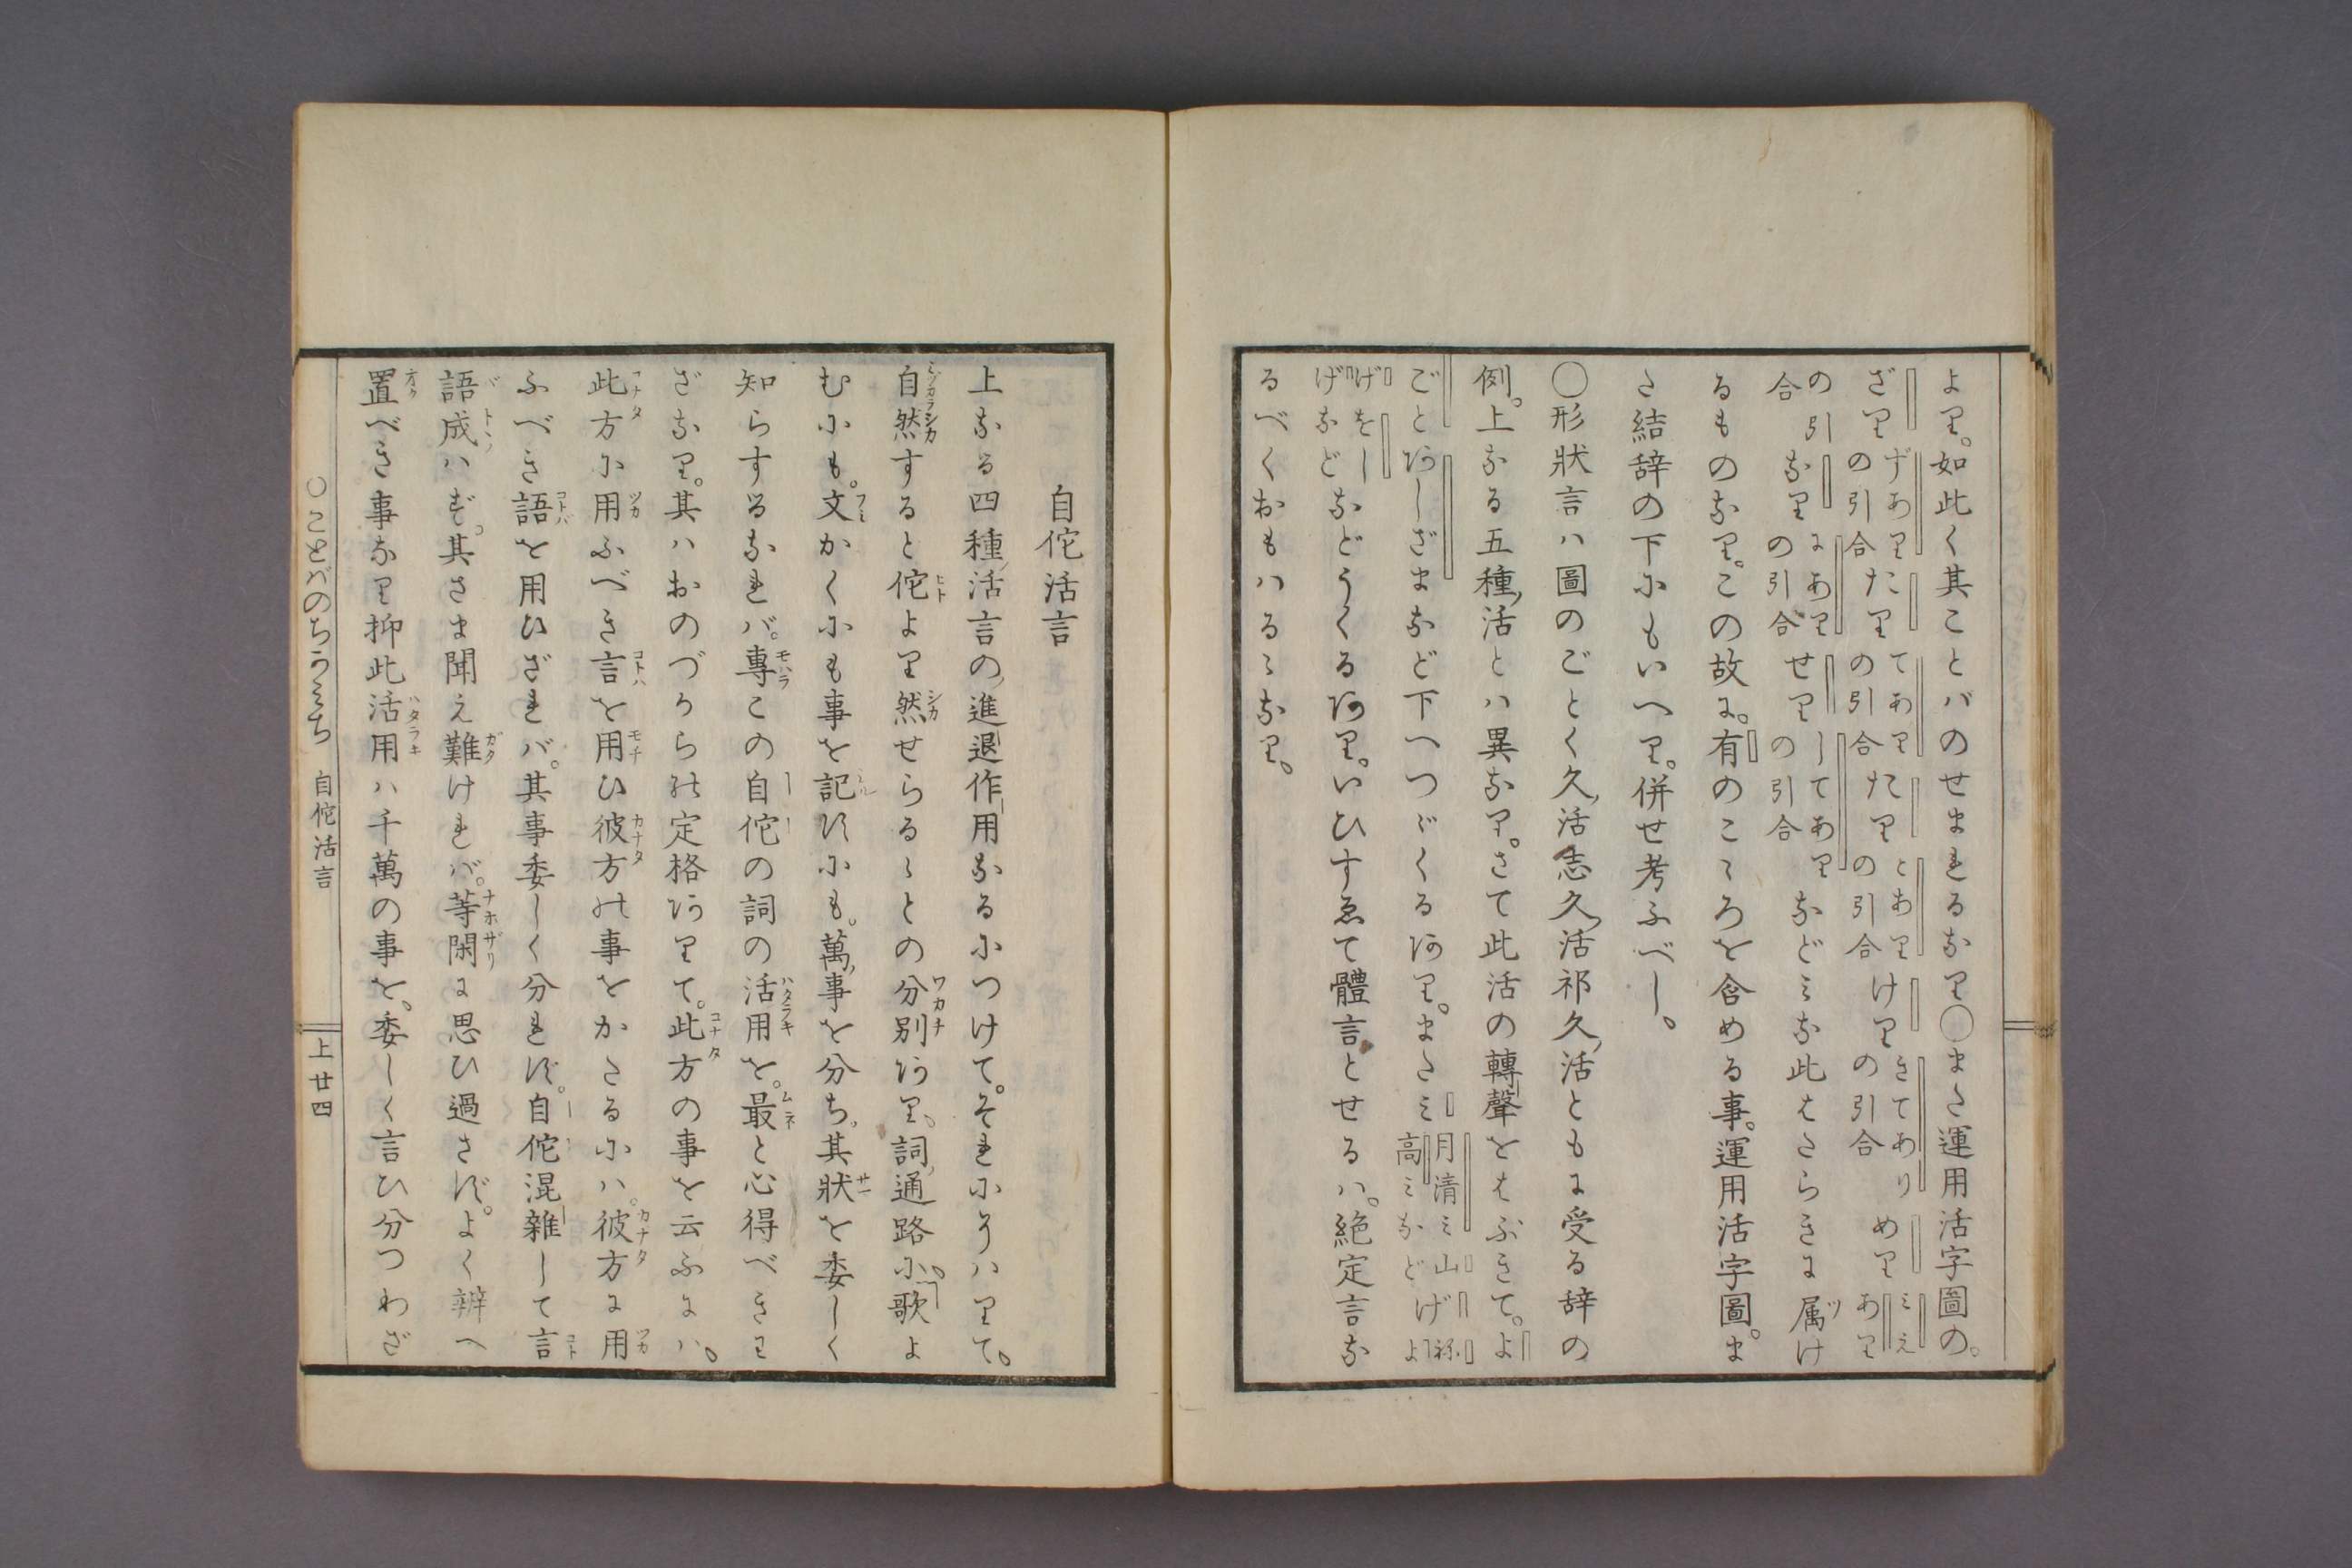 より。如此く其ことバのせまれるなり〇また運用活字圖の。
ざり ずありの引合 たり てありの引合 たり とありの引合 けり きてありの引合 めり みえあり
の引合なり にありの引合 せり してありの引合 などみな此はたらきに属け
るものなり。この故に。有のこゝろを含める事。運用活字圖。ま
た結辞の下にもいへり。併せ考ふべし。
〇形状言ハ圖のごとく久活志久活祁久活ともに受る辞の
例。上なる五種活とハ異なり。さて此活の轉聲をはぶきて。よ
ごとあしざまなど下へつゞくるあり。またみ 月清み山高みなど げ
げをしげなどなどうくるあり。いひすゑて體言とせるハ。絶定言な
るべくおもハるゝなり。
自佗活言
上なる四種活言の進退作用なるにつけて。それにそハりて。
自然すると佗より然せらるゝとの分別あり。詞通路に。歌よ
むにも。文かくにも事を記すにも。萬事を分ち。其狀を委しく
知らするなれバ。專この自佗の詞の活用を。最と心得べきわ
ざなり。其ハおのづから定格ありて。此方の事を云ふにハ。
此方に用ふべき言を用ひ彼方の事をかたるにハ。彼方に用
ふべき語を用ひざれバ。其事委しく分れず。自佗混雜して言
語成ハず。其さま聞え難けれバ。等閑に思ひ過さず。よく辨へ
置べき事なり抑此活用ハ千萬の事を。委しく言ひ分つわざ
〇ことばのちかみち 自佗活言 上廿四